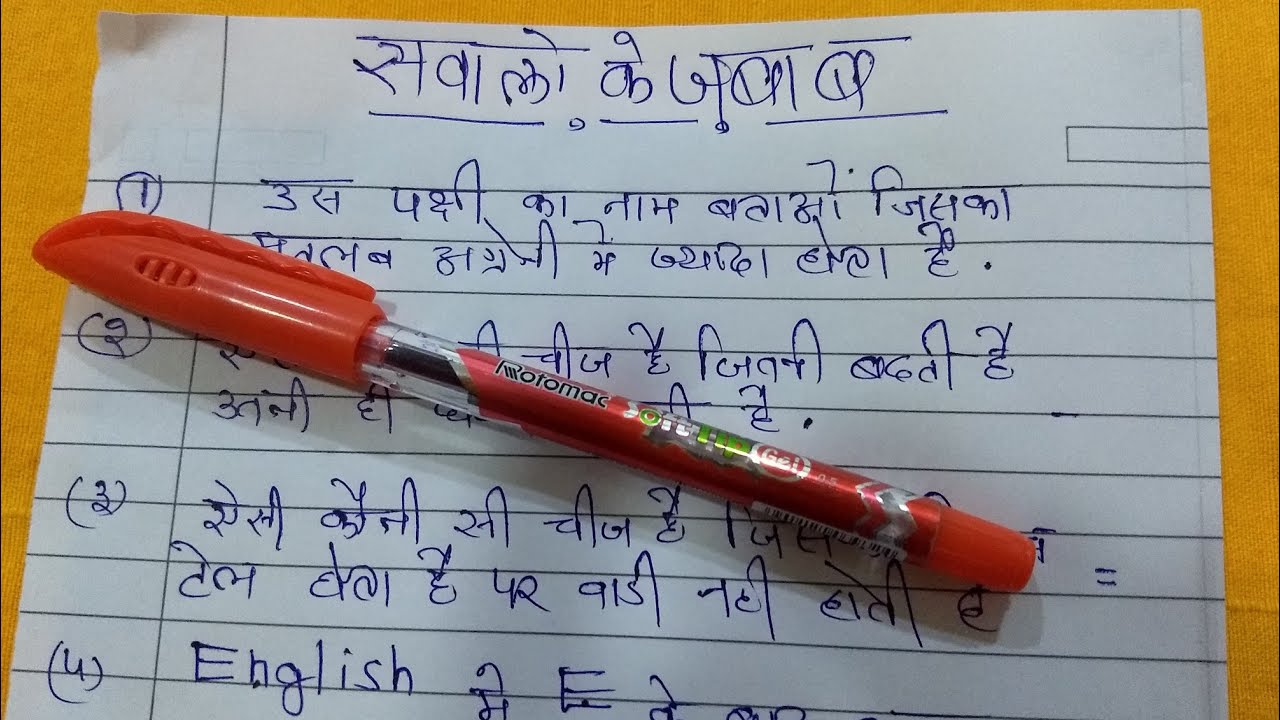 सवालो के जुबाब
(१) उस पक्षी का नाम बताओं जिसका
मतलब अग्रेजी में ज्यादा होता है.
(२) चीज है जितनी बढती है
उतनी ही है.
(३) ऐसी कौनी सी चीज है जिस
टेल होता है पर वाडी नही होती है
=
(५) English मे E के बाद
Motomac
Gel
0.5